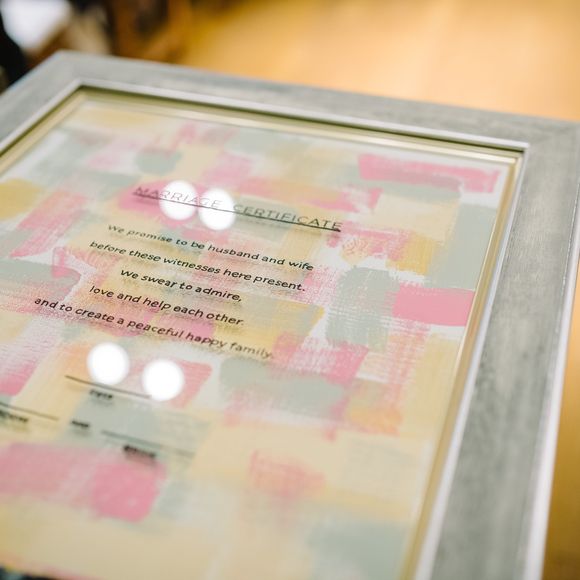 MARRIAGE CERTIFICATE
We promise to be husband and wife
before these witnesses here present.
We swear to admire,
love and help each other.
and to create a peaceful happy family.